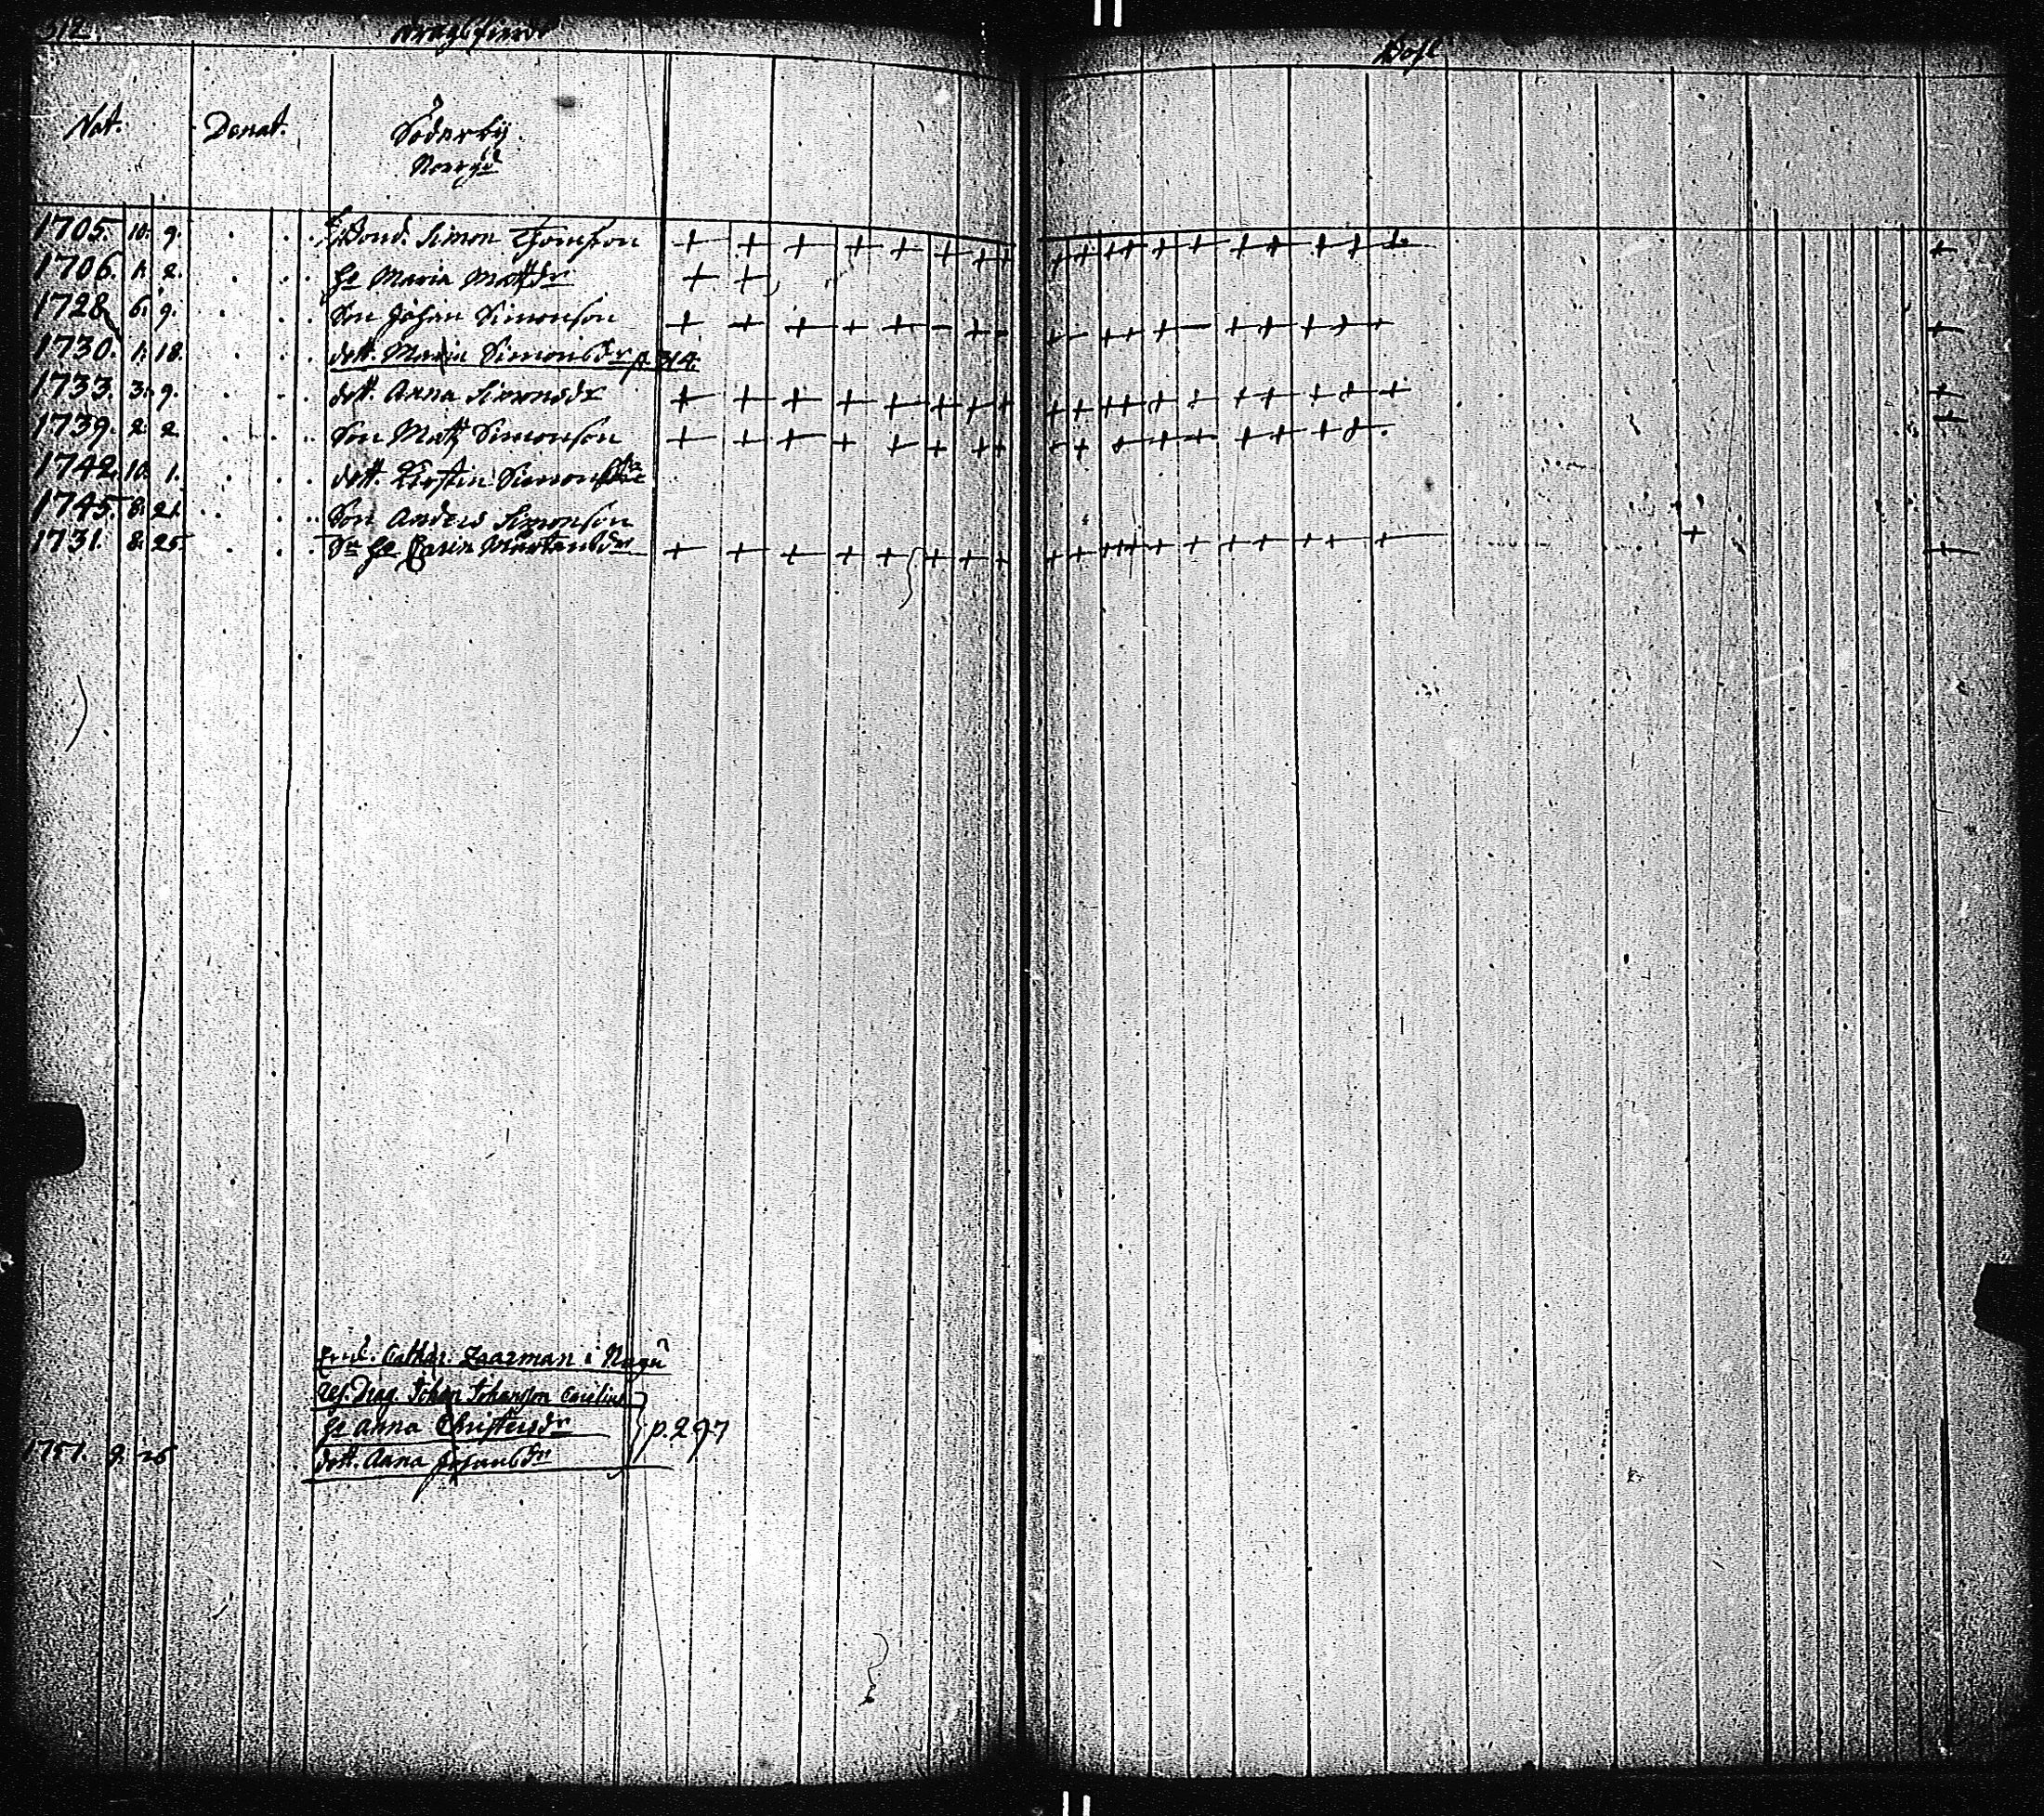 312. Dragsfierd
Nat. Denat. Söderby
Norrgd
1705. 10. 9. Bond. Simon Thomsson
1706. 1. 2. H. Maria Mattsdr
1728 6. 9. Son Johan Simonson
1730. 1. 18. dott. Maria Simonsdr p. 314.
1733. 3. 9. dott. Anna Simonsdr
1739. 2. 2. Son Matts Simonson
1742. 10. 1. dott. Kirstin Simonsdr
1745. 8. 21. Son Anders Simonson
1731. 8. 25. Sn H. Carin Mårtensdr
Cathar. Zaarman i Nagu
ref. Drag. Johan Johansson
H. Anna Christersdr p. 297
1751. 9. 26 dott. Anna Johansdr